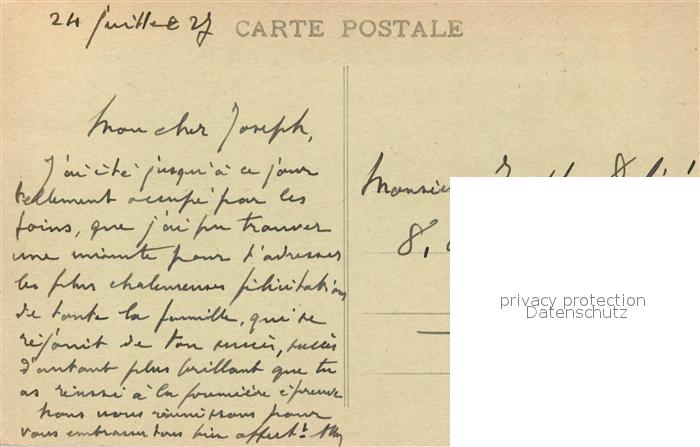 24 juillet 27
CARTE POSTALE
Mon cher Joseph,
J'ai été jusqu'à ce jour
tellement occupé par les
foins, que j'ai pu trouver
une minute pour t'adresser
les plus chaleureuses félicitations
de toute la famille, qui se
réjouit de ton succès, succès
d'autant plus brillant que tu
as réussi à la première épreuve
Nous nous réunissons pour
vous embrasser tous bien affectt
Monsieur
8,
privacy protection
Datenschutz